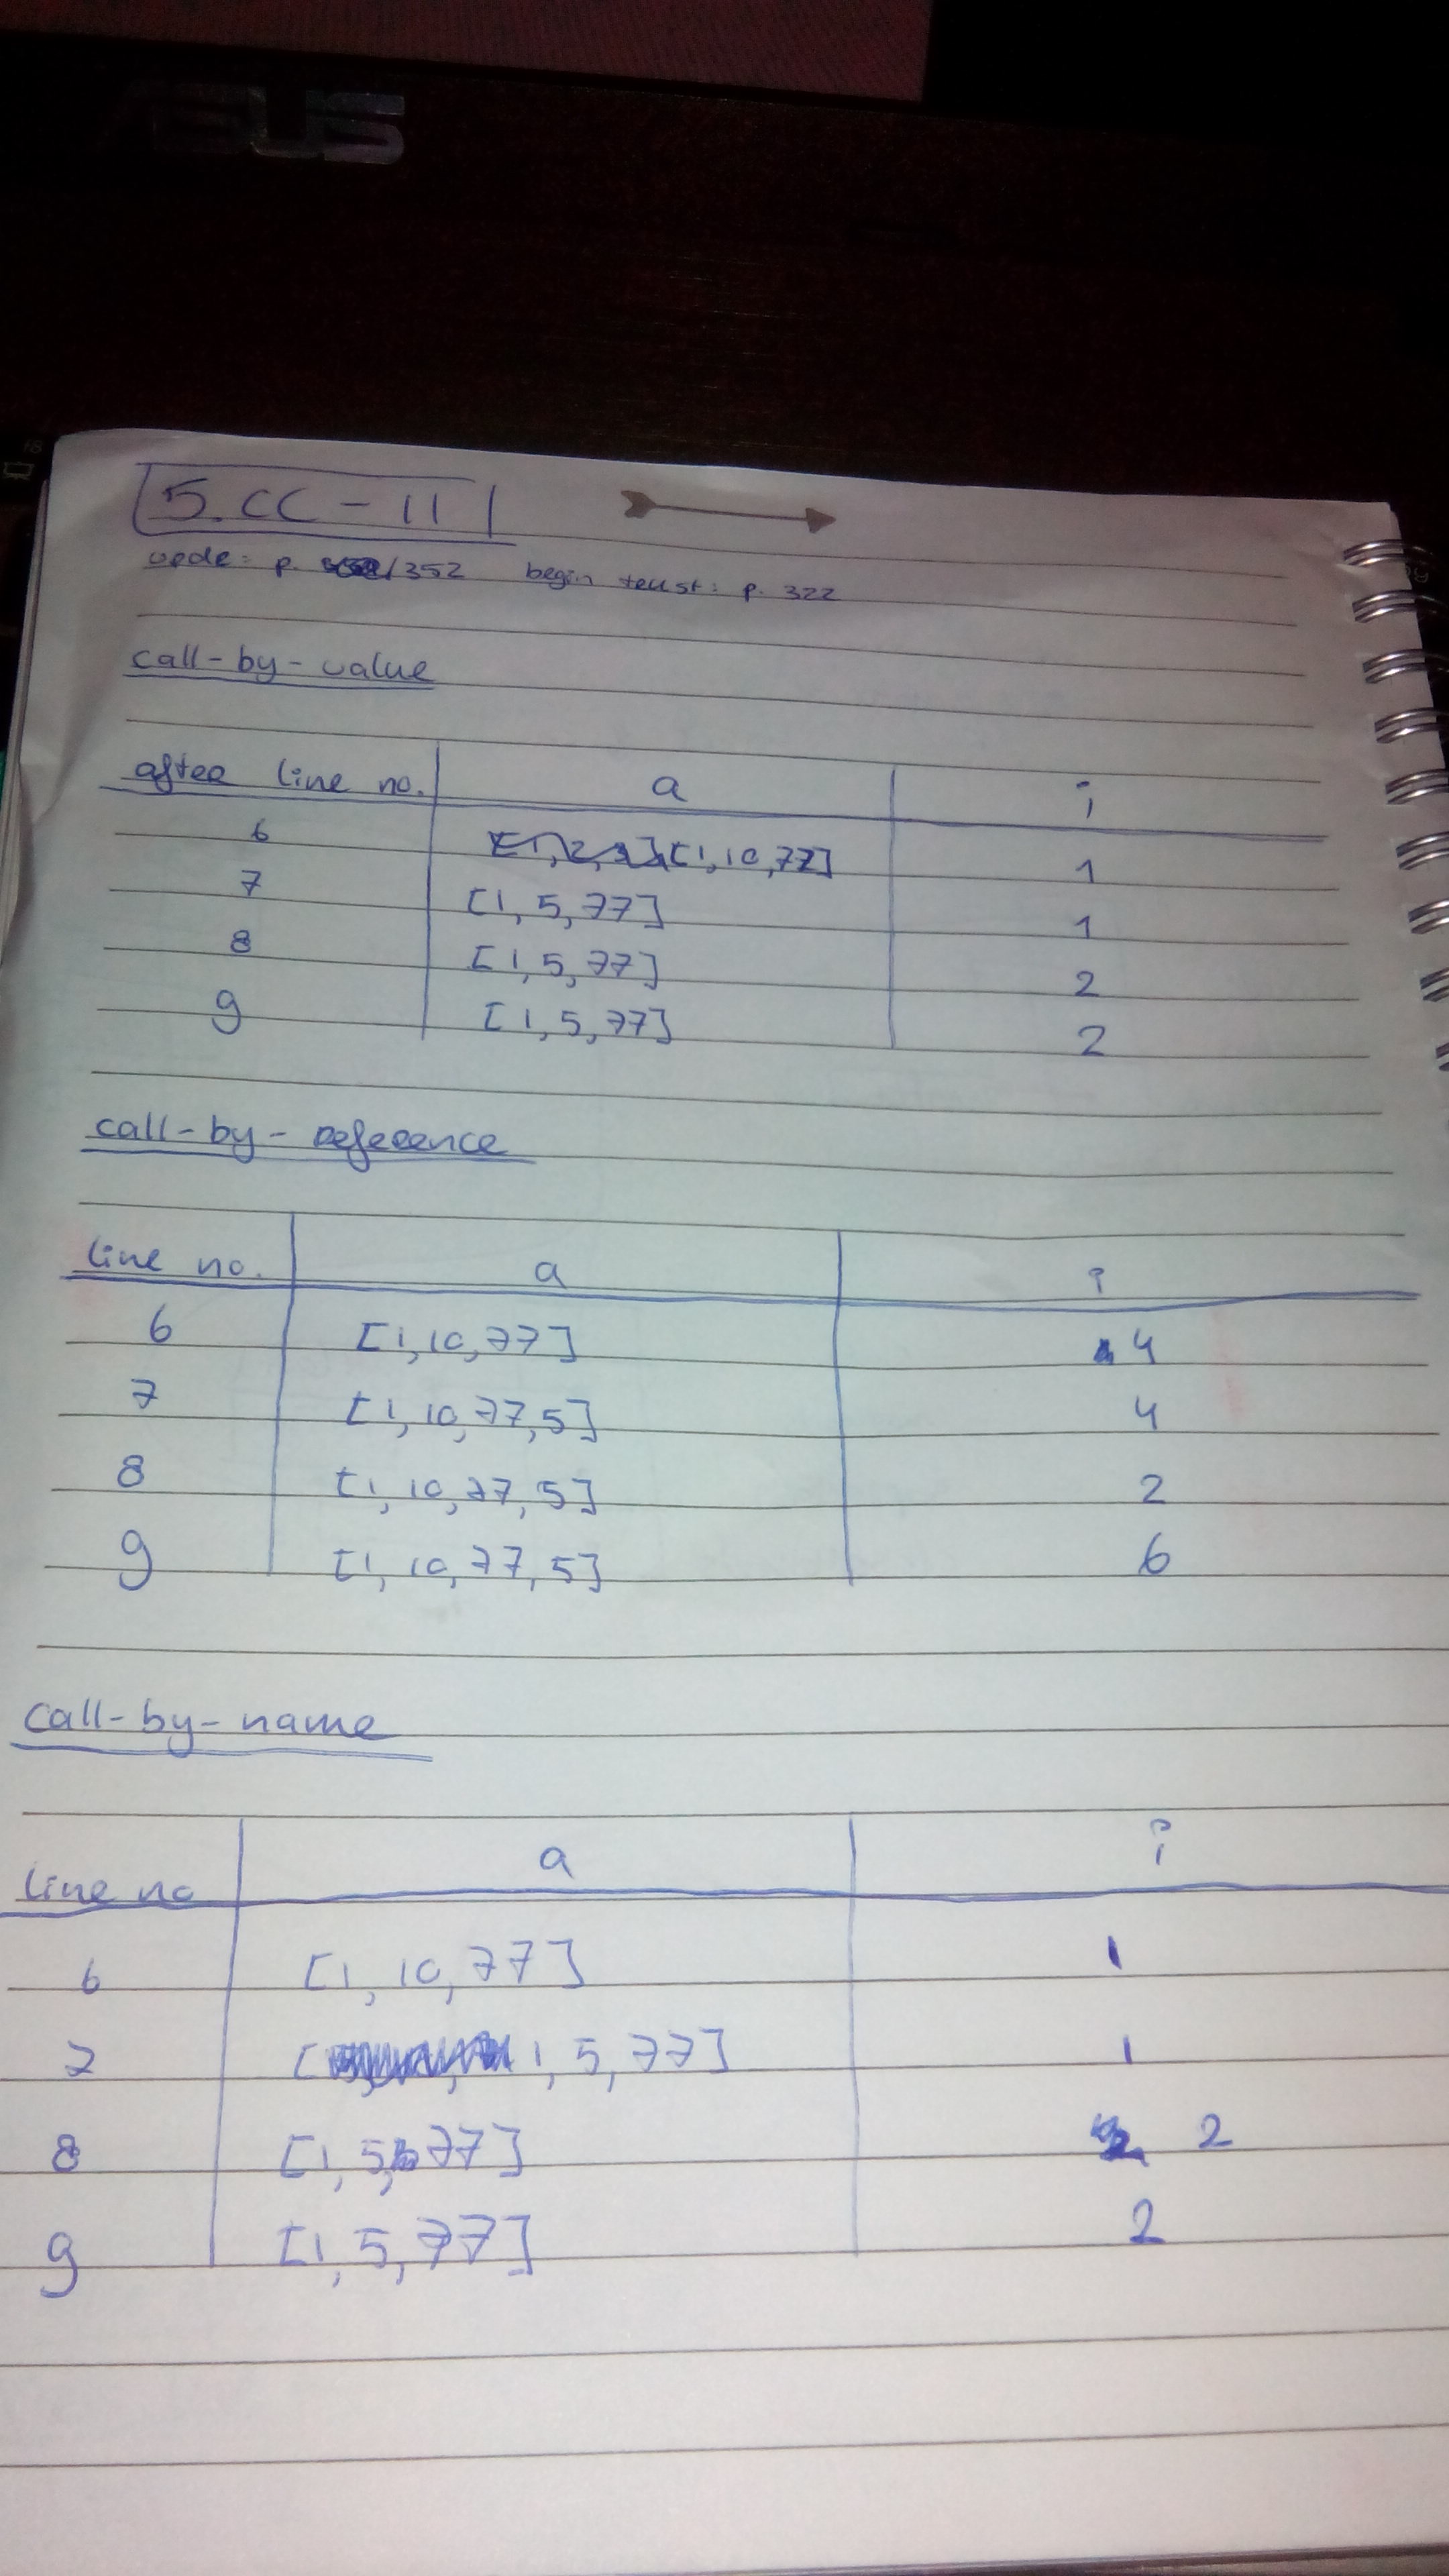 ASUS
5. CC - 11
p. /352 begin p. 322
call-by-value
after line no. a i
6 [1, 10, 77] 1
7 [1, 5, 77] 1
8 [1, 5, 77] 2
9 [1, 5, 77] 2
call-by-reference
line no. a i
6 [1, 10, 77] 4
7 [1, 10, 77, 5] 4
8 [1, 10, 77, 5] 2
9 [1, 10, 77, 5] 6
call-by-name
line no a i
6 [1, 10, 77] 1
7 [1, 5, 77] 1
8 [1, 5, 77] 2
9 [1, 5, 77] 2